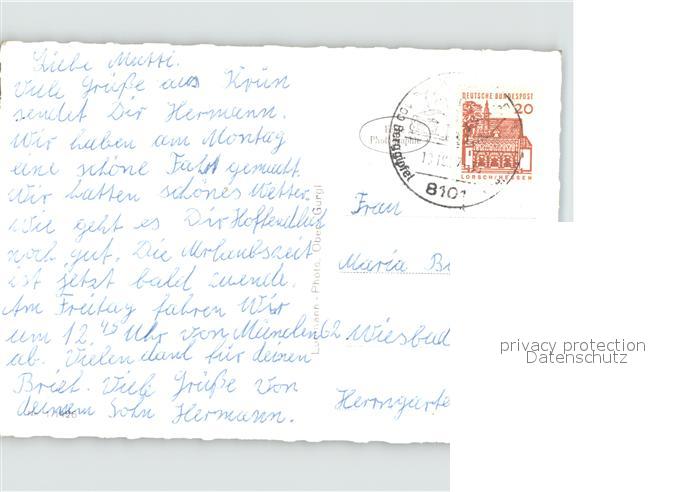 Liebe Mutti.
Viele Grüße aus Krün
sendet Dir Hermann.
Wir haben am Montag
eine schöne Fahrt gemacht.
Wir hatten schönes Wetter.
Wie geht es Dir Hoffendlich
noch gut. Die Urlaubszeit
ist jetzt bald zuende.
Am Freitag fahren Wir
um 12.45 Uhr von München
ab. Vielen dank für deinen
Brief. Viele Grüße von
deinem Sohn Hermann.
Photo, Ober-Gurgl
DEUTSCHE BUNDESPOST
20
LORSCH/HESSEN
100 Berggipfel
8101
Frau
Maria
62 Wiesbad
Herrngarte
privacy protection
Datenschutz